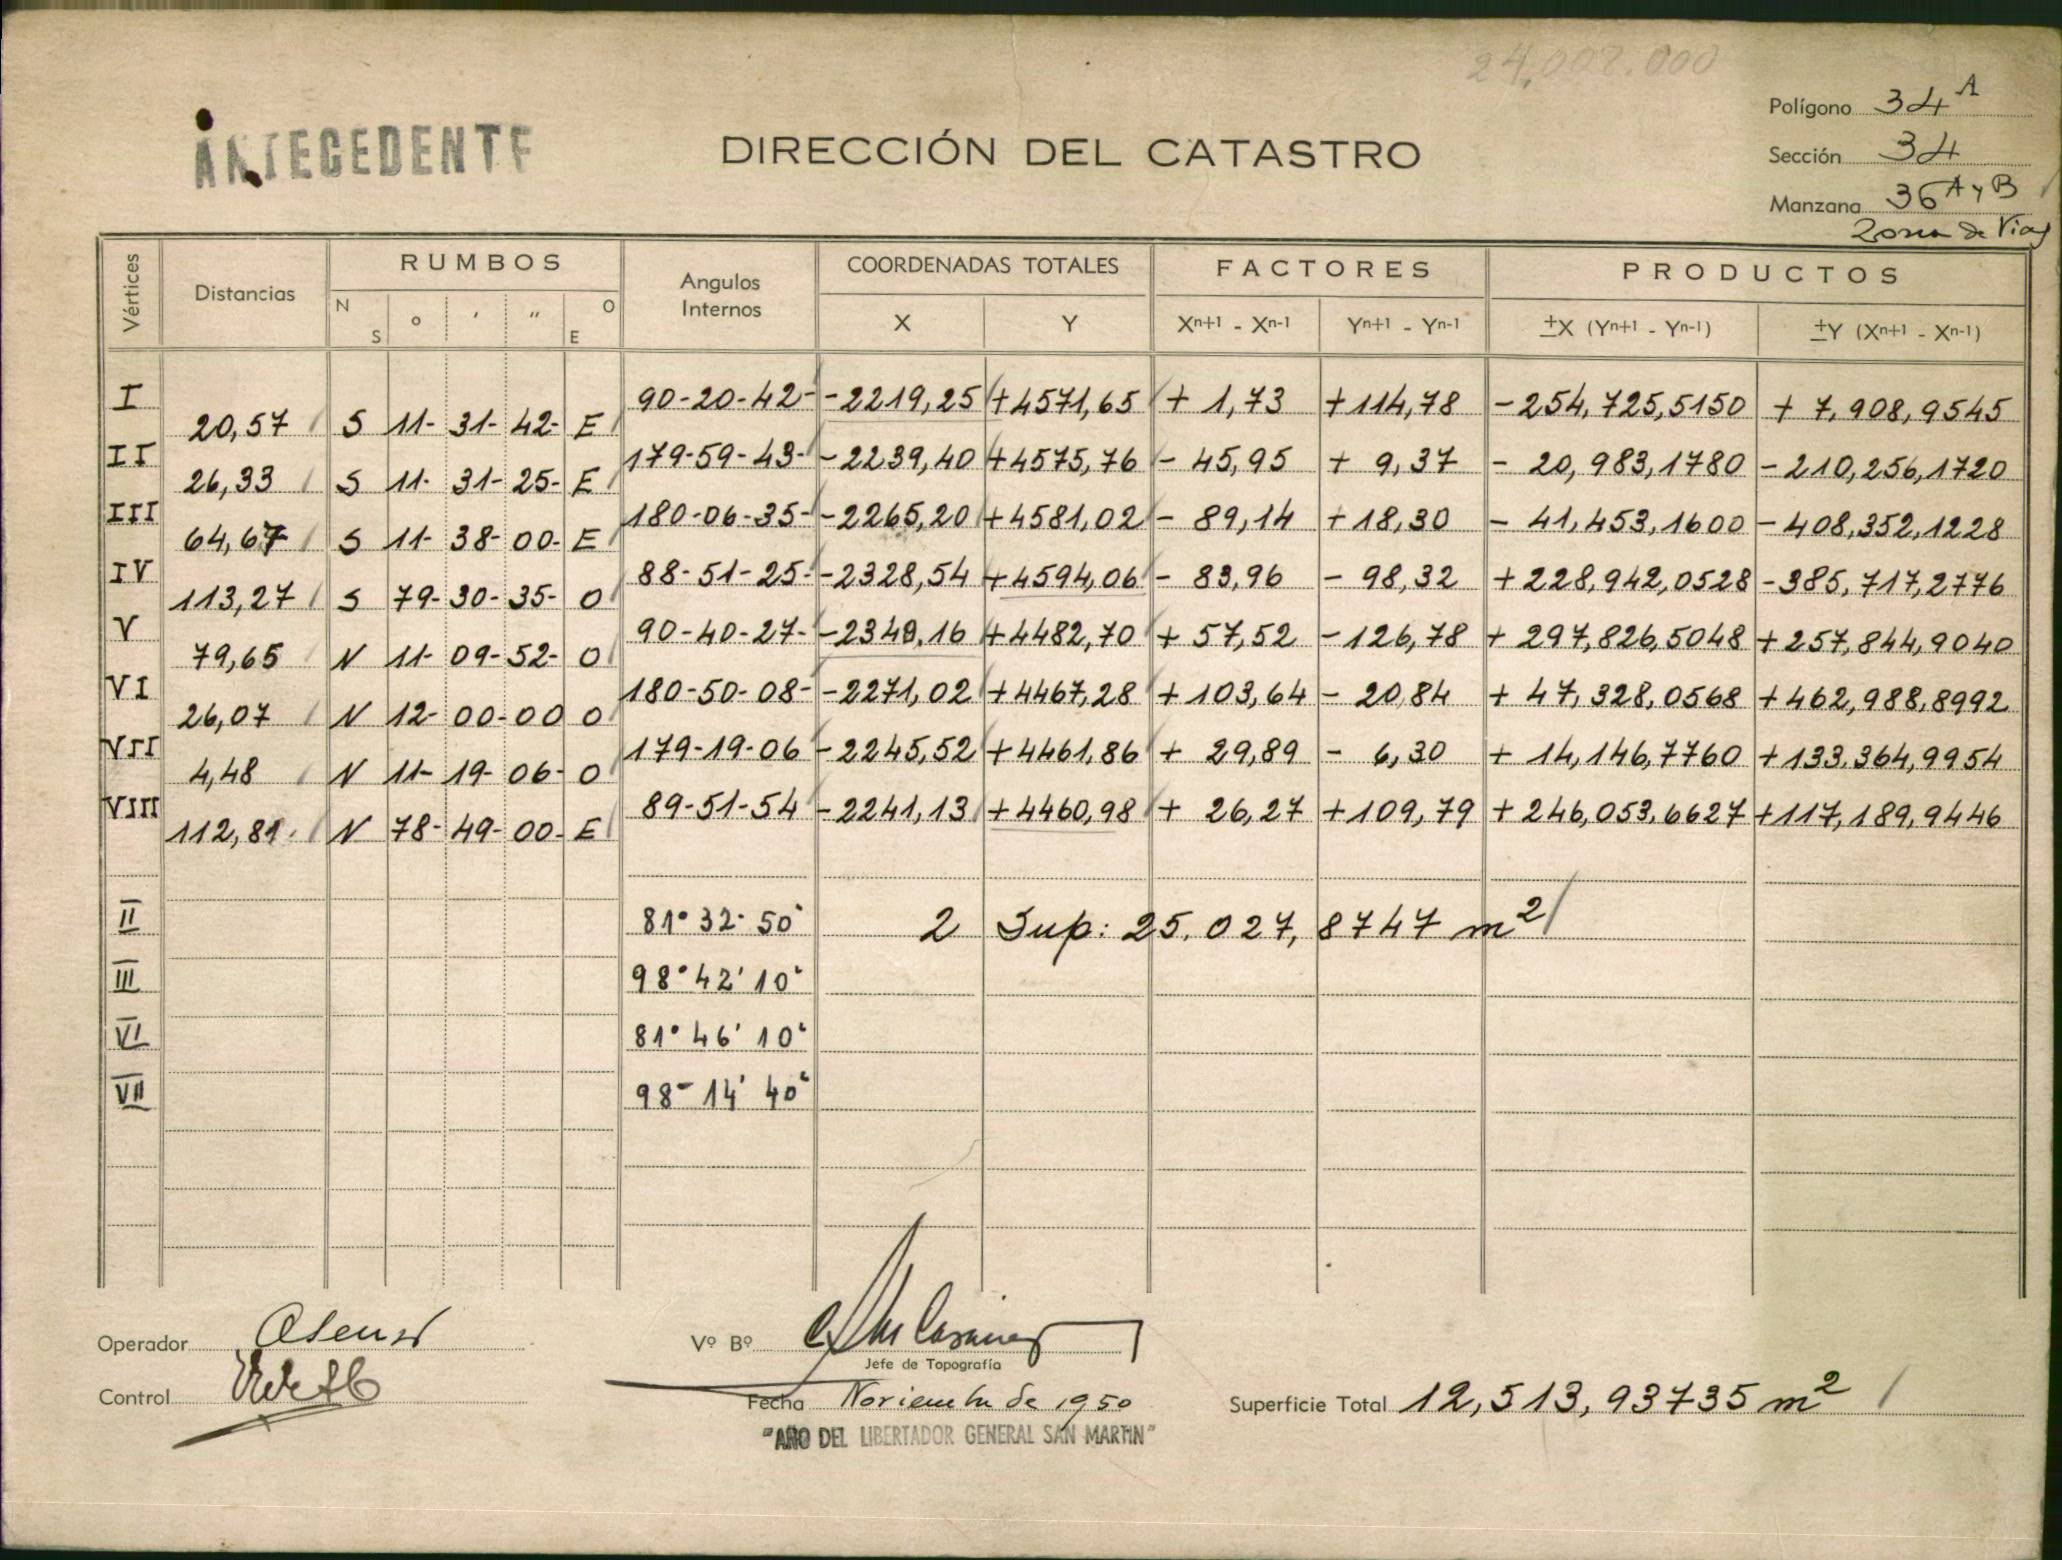 24.002.000
Polígono 34 A
ANTECEDENTE
DIRECCIÓN DEL CATASTRO
Sección 34
Manzana 36 A y B
Zona de Vias
Vértices Distancias RUMBOS Angulos Internos COORDENADAS TOTALES FACTORES PRODUCTOS
N S ° ' " O E X Y Xn+1 - Xn-1 Yn+1 - Yn-1 ±X (Yn+1 - Yn-1) ±Y (Xn+1 - Xn-1)
I 90-20-42- -2219,25 +4571,65 + 1,73 +114,78 -254,725,5150 + 7,908,9545
20,57 S 11- 31- 42- E
II 179-59-43- -2239,40 +4575,76 - 45,95 + 9,37 - 20,983,1780 -210,256,1720
26,33 S 11- 31- 25- E
III 180-06-35- -2265,20 +4581,02 - 89,14 +18,30 - 41,453,1600 -408,352,1228
64,67 S 11- 38- 00- E
IV 88-51-25- -2328,54 +4594,06 - 83,96 - 98,32 +228,942,0528 -385,717,2776
113,27 S 79- 30- 35- O
V 90-40-27- -2349,16 +4482,70 + 57,52 -126,78 + 297,826,5048 +257,844,9040
79,65 N 11- 09- 52- O
VI 180-50-08- -2271,02 +4467,28 + 103,64 - 20,84 + 47,328,0568 +462,988,8992
26,07 N 12- 00- 00 O
VII 179-19-06 -2245,52 +4461,86 + 29,89 - 6,30 + 14,146,7760 +133,364,9954
4,48 N 11- 19- 06- O
VIII 89-51-54 -2241,13 +4460,98 + 26,27 +109,79 + 246,053,6627 +117,189,9446
112,81 N 78- 49- 00- E
II 81° 32' 50" 2 Sup: 25.027,8747 m2
III 98° 42' 10"
VI 81° 46' 10"
VII 98- 14' 40"
Operador
Vº Bº
Jefe de Topografía
Control
Fecha Noviembre de 1950
Superficie Total 12,513,93735 m2
"AÑO DEL LIBERTADOR GENERAL SAN MARTIN"